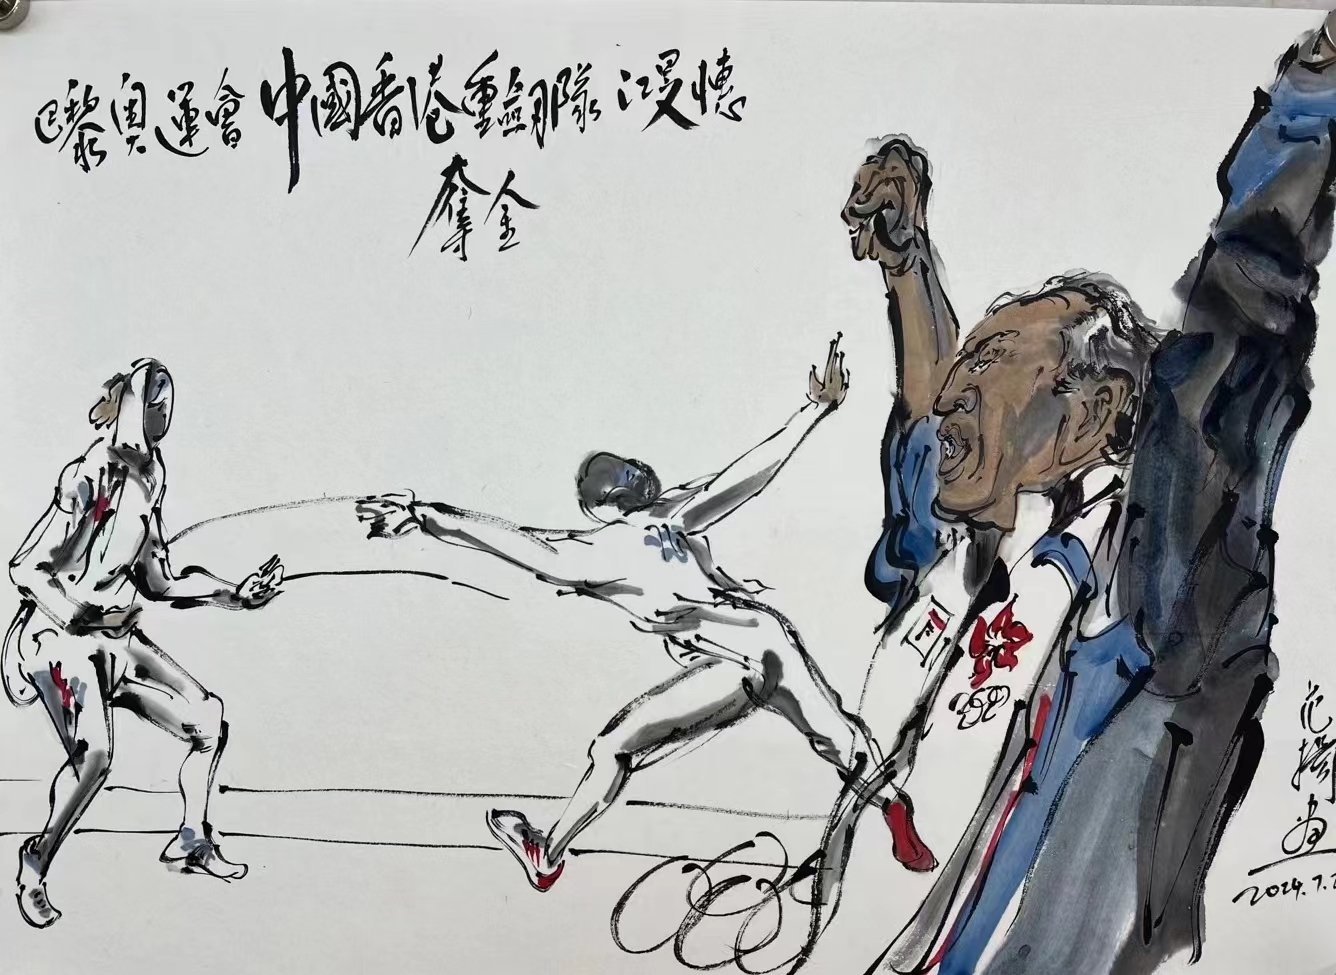 巴黎奧運會 中國香港重劍隊 江旻憓
奪金
范 画
2024.7.